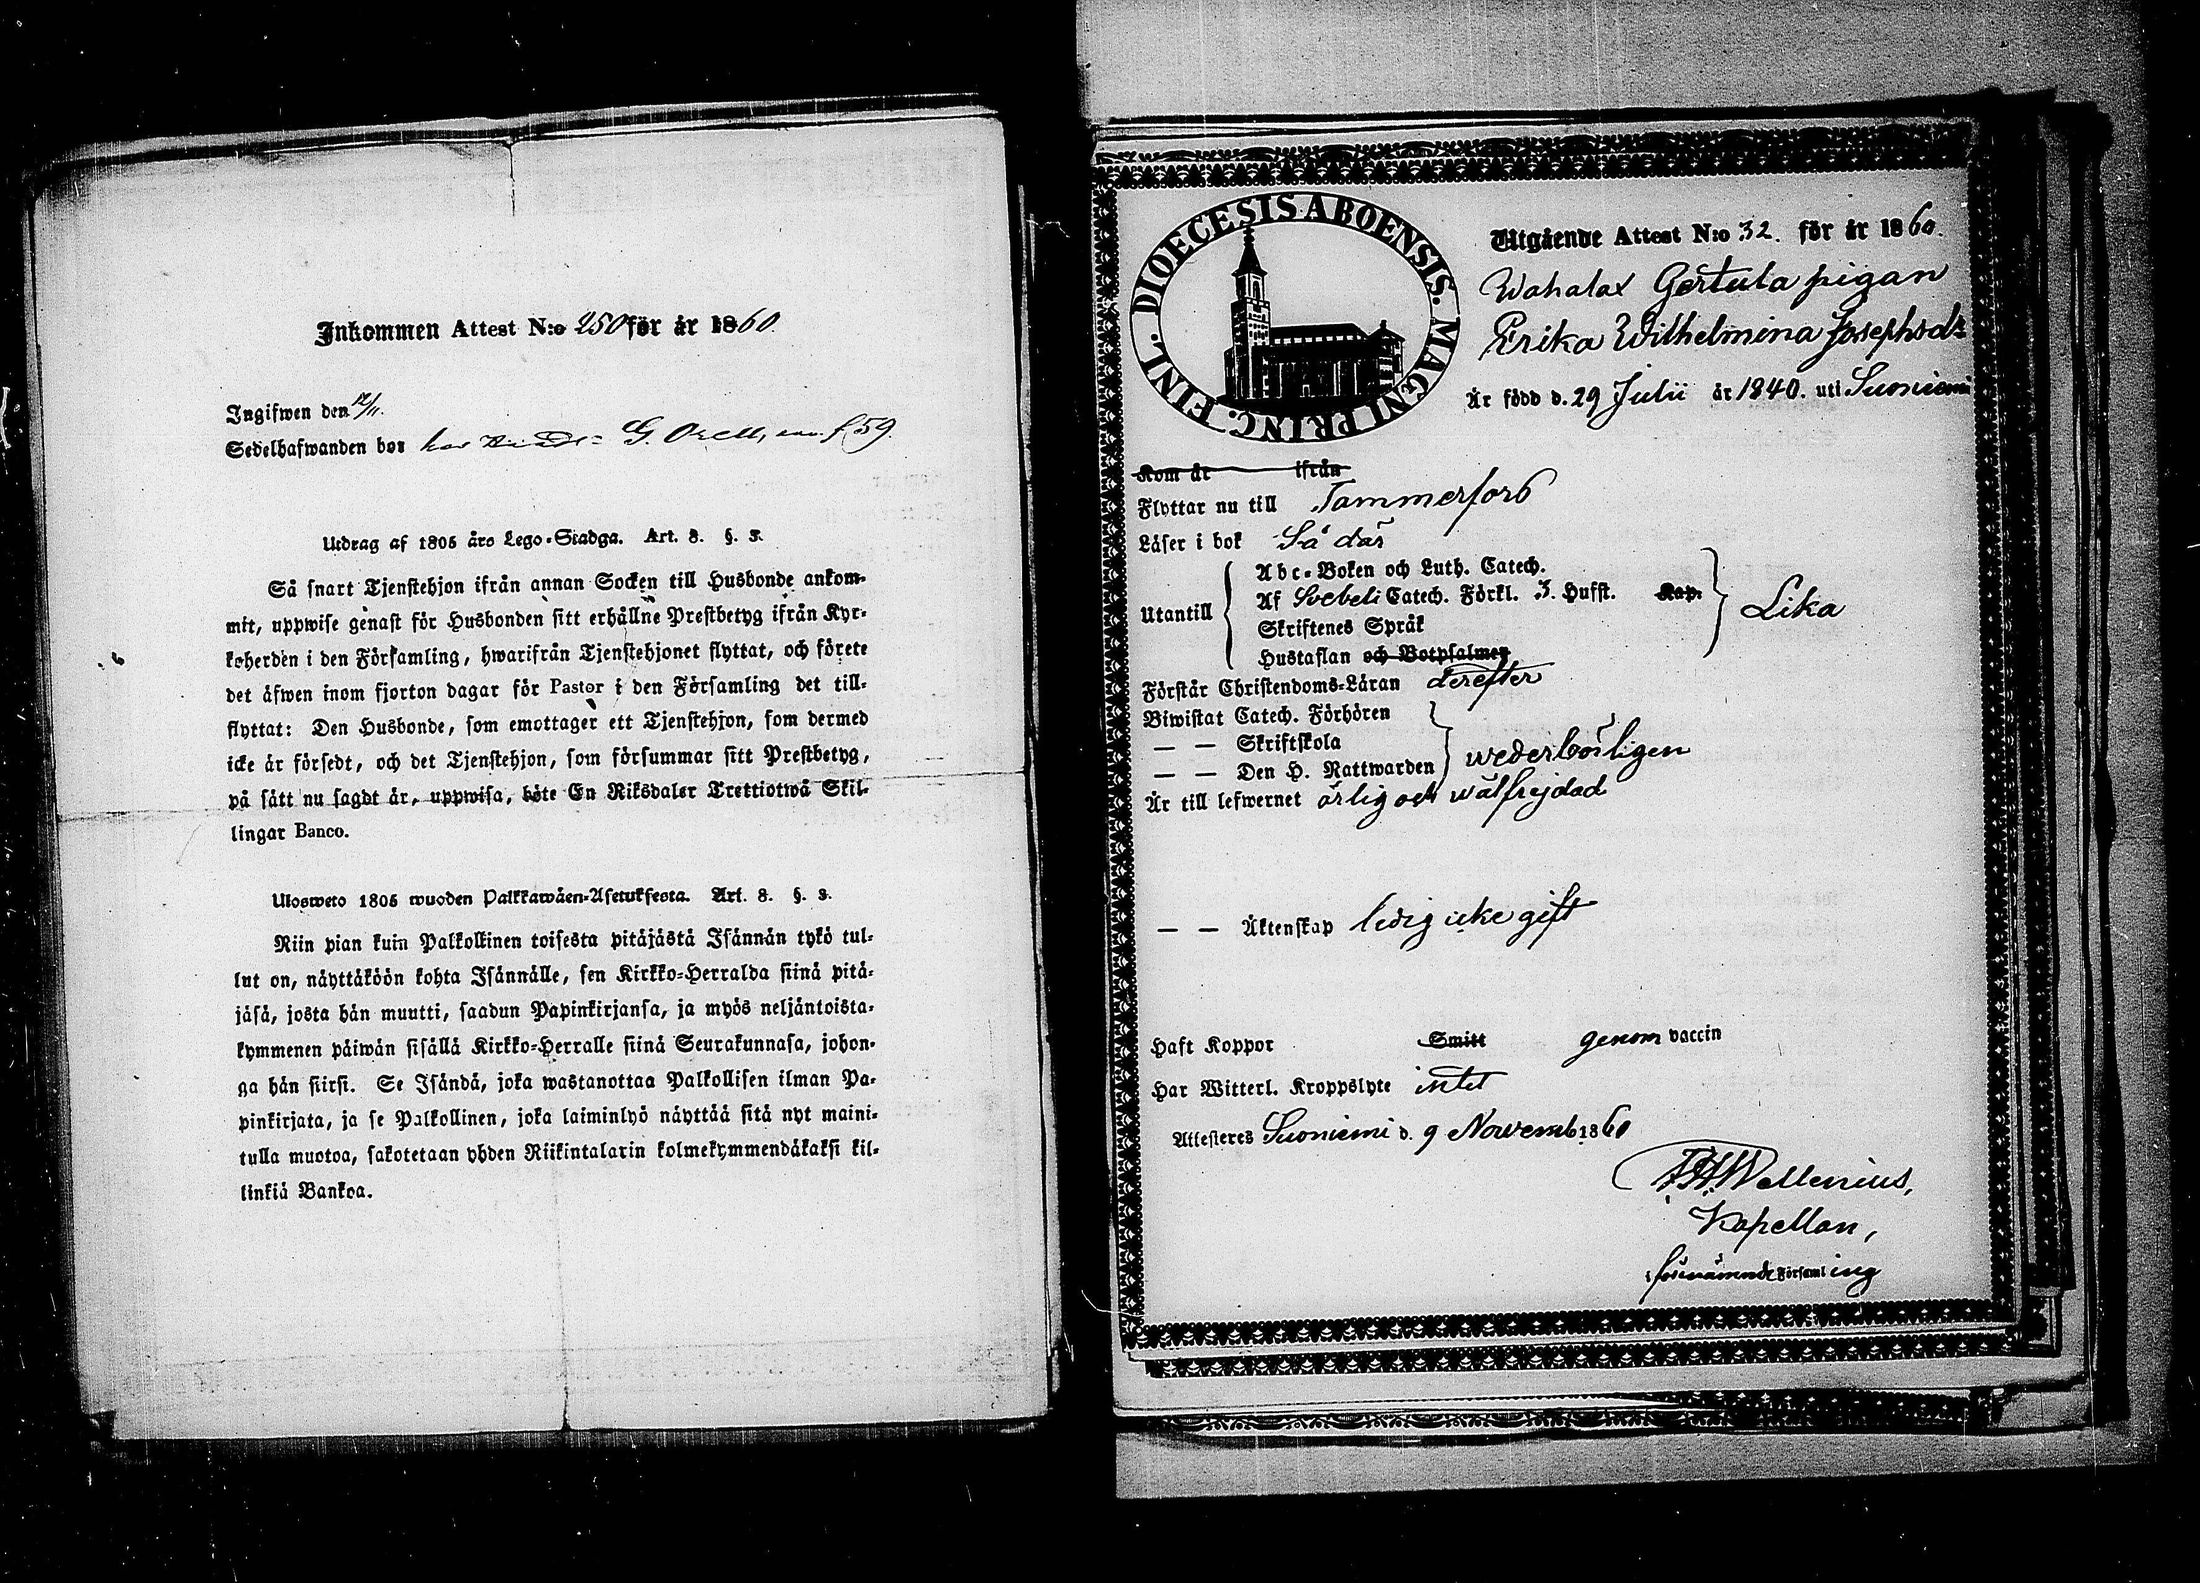 Inkommen Attest N:o 250 för år 1860.
Ingifwen den 12/11.
Sedelhafwanden bor hos G. f 59.
Utdrag af 1805 års Lego-Stadga. Art. 8. §. 3.
Så snart Tjenstehjon ifrån annan Socken till Husbonde ankom-
mit, uppwise genast för Husbonden sitt erhållne Prestbetyg ifrån Kyr-
koherden i den Församling, hwarifrån Tjenstehjonet flyttat, och förete
det äfwen inom fjorton dagar för Pastor i den Församling det till-
flyttat: Den Husbonde, som emottager ett Tjenstehjon, som dermed
icke är försedt, och det Tjenstehjon, som försummar sitt Prestbetyg,
på sätt nu sagdt är, uppwisa, böte En Riksdaler Trettiotwå Skil-
lingar Banco.
Ulosweto 1805 wuoden Palkkawäen-Asetuksesta. Art. 8. §. 3.
Niin pian kuin Palkollinen toisesta pitäjästä Isännän tykö tul-
lut on, näyttäköön kohta Isännälle, sen Kirkko-Herralda siinä pitä-
jäsä, josta hän muutti, saadun Papinkirjansa, ja myös neljäntoista-
kymmenen päiwän sisällä Kirkko-Herralle siinä Seurakunnasa, johon-
ga hän siirsi. Se Isändä, joka wastanottaa Palkollisen ilman Pa-
pinkirjata, ja se Palkollinen, joka laiminlyö näyttää sitä nyt maini-
tulla muotoa, sakotetaan yhden Riikintalarin kolmekymmendäkaksi kil-
linkiä Bankoa.
DIOECESIS ABOENSIS. MAGNI PRINC. FINL.
Utgående Attest N:o 32. för år 1860.
Wahalax Gertula pigan
Erika Wilhelmina Josephsdr
Är född d. 29 Julii år 1840. uti Suoniemi
Kom år ifrån
Flyttar nu till Tammerfors
Läser i bok Så där
Abc-Boken och Luth. Catech.
Utantill Af Svebeli Catech. Förkl. 3. Hufst. Kap. Lika
Skriftenes Språk
Hustaflan och Botpsalmer
Förstår Christendoms-Läran derefter
Biwistat Catech. Förhören
— — Skriftskola wederbörligen
— — Den H. Nattwarden
Är till lefwernet ärlig och wälfrejdad
— — Äktenskap ledig icke gift
Haft Koppor Smitt genom vaccin
Har Witterl. Kroppslyte intet
Attesteres Suoniemi d. 9 Novemb 1860
Wallenius,
Kapellan,
i förenämnde Församling